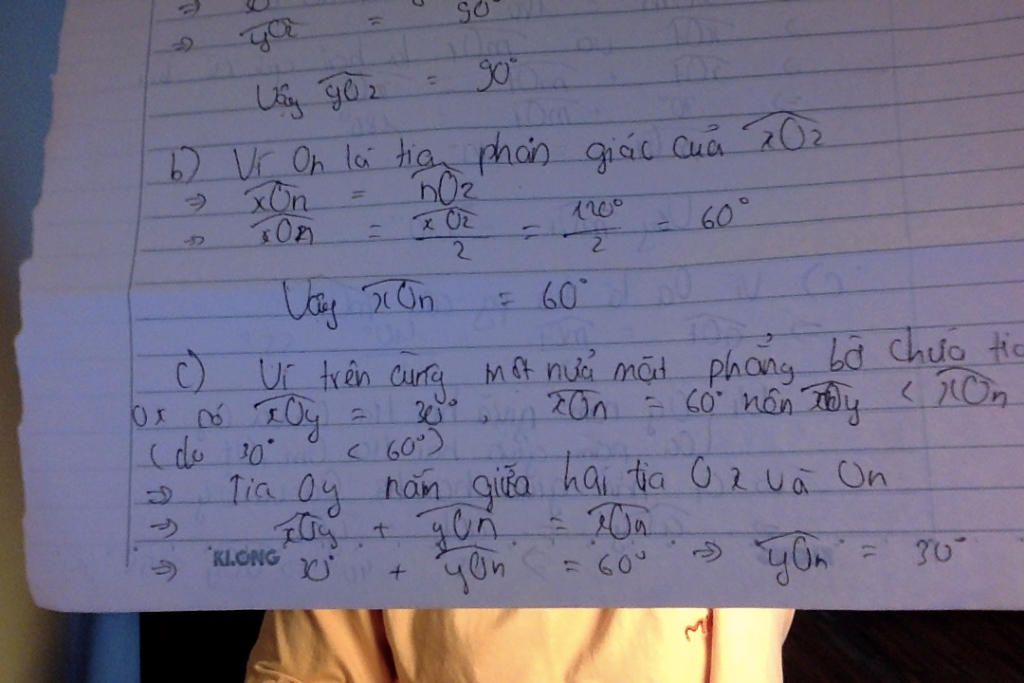 ⇒ yOz = 90°
Vậy yOz = 90°
b) Vì On là tia phân giác của xOz
⇒ xOn = nOz
⇒ xOn = xOz/2 = 120°/2 = 60°
Vậy xOn = 60°
c) Vì trên cùng một nửa mặt phẳng bờ chứa tia
Ox có xOy = 30°, xOn = 60° nên xOy < xOn
(do 30° < 60°)
⇒ Tia Oy nằm giữa hai tia Ox và On
⇒ xOy + yOn = xOn
⇒ KLONG 30° + yOn = 60° ⇒ yOn = 30°